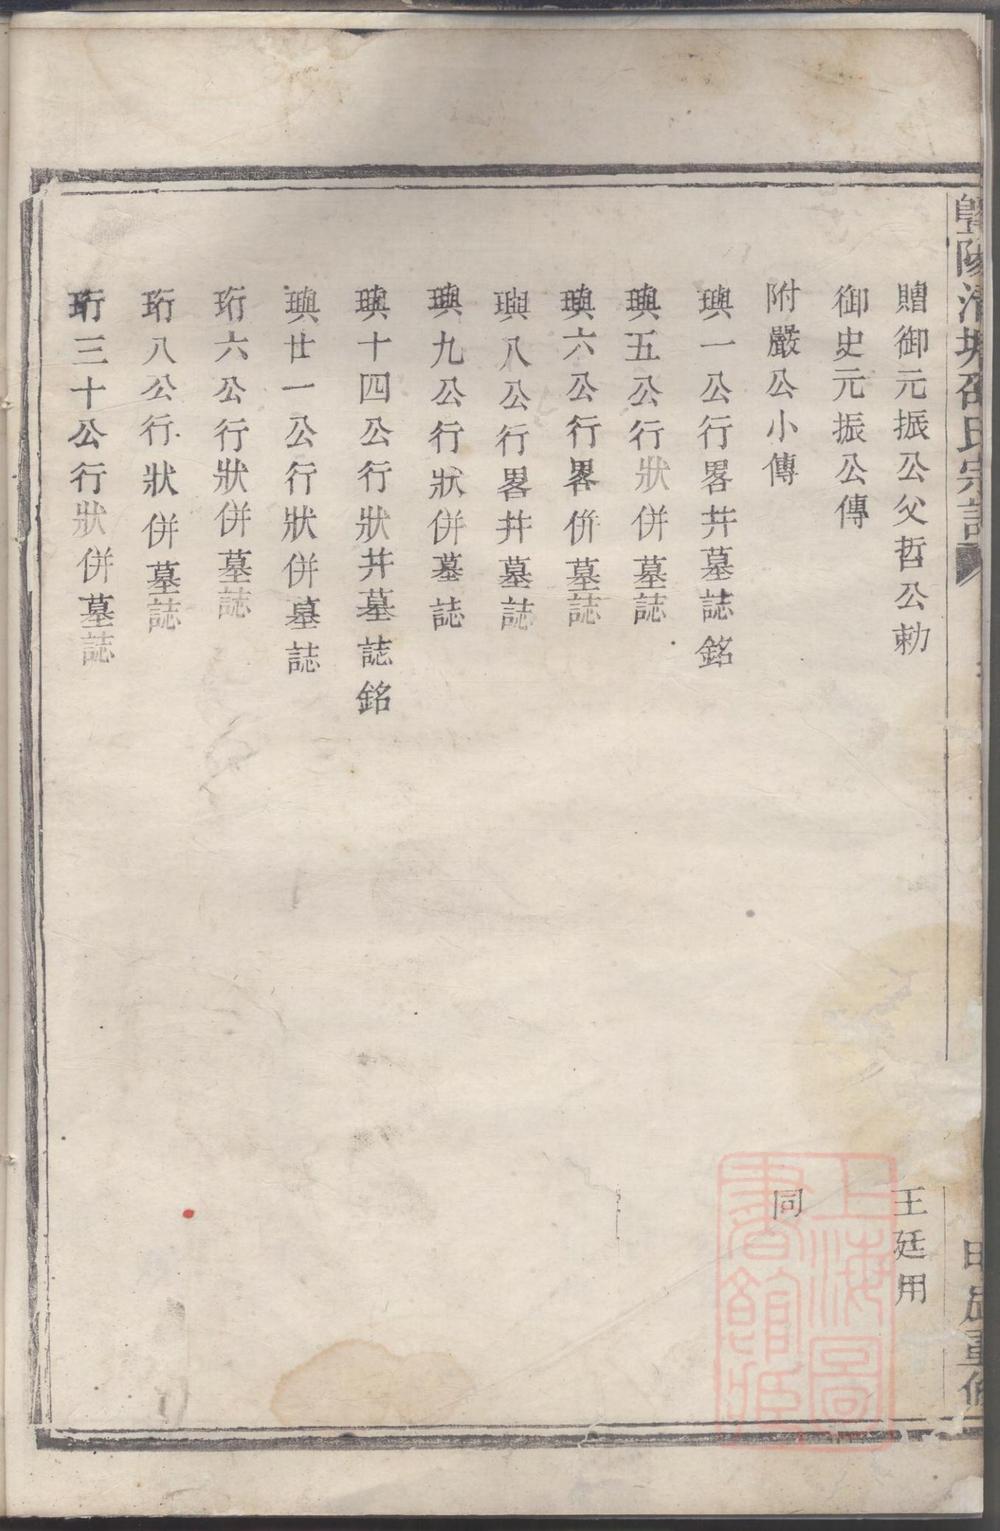 暨陽清塘邵氏宗譜
重修
贈御元振公父哲公勅 王廷用
御史元振公傳
附嚴公小傳 同
璵一公行畧并墓誌銘
璵五公行狀併墓誌
璵六公行畧併墓誌
璵八公行畧并墓誌
璵九公行狀併墓誌
璵十四公行狀并墓誌銘
璵廿一公行狀併墓誌
珩六公行狀併墓誌
珩八公行狀併墓誌
珩三十公行狀併墓誌
上海圖書館藏